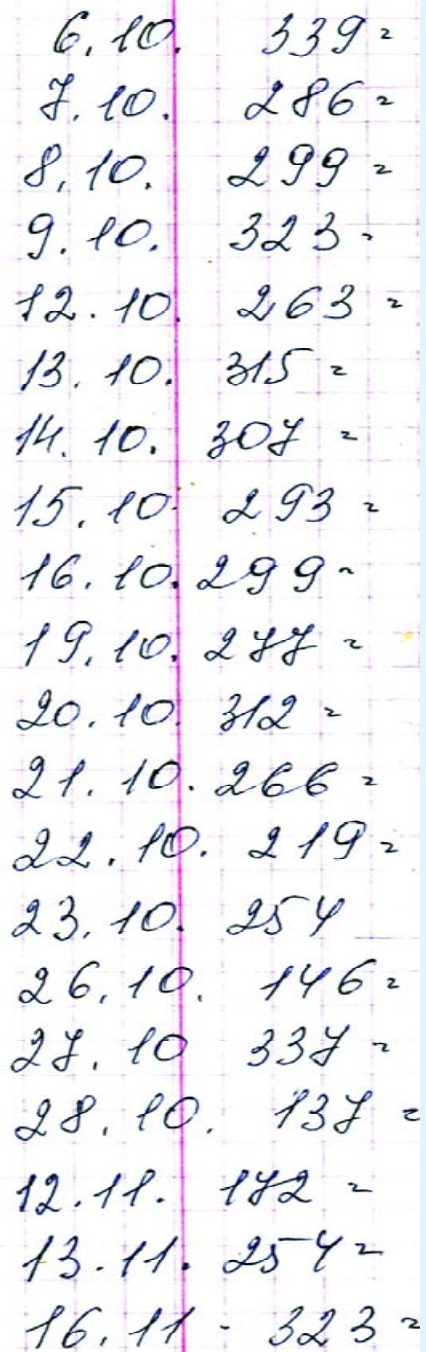 6.10. 339=
7.10. 286=
8.10. 299=
9.10. 323=
12.10. 263=
13.10. 315=
14.10. 307=
15.10. 293=
16.10. 299=
19.10. 277=
20.10. 312=
21.10. 266=
22.10. 219=
23.10. 254
26.10. 146=
27.10 337=
28.10. 137=
12.11. 172=
13.11. 254=
16.11 - 323=